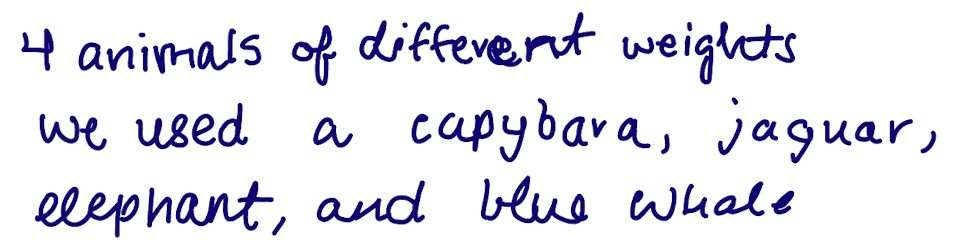 4 animals of different weights
we used a capybara, jaguar,
elephant, and blue whale